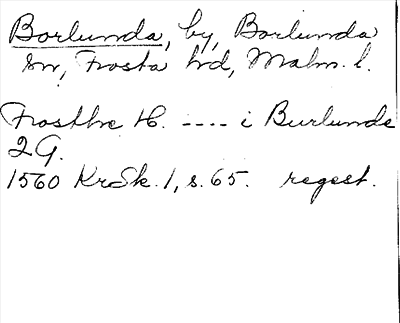 Borlunda, by, Borlunda
sn, Frosta hd, Malm. l.
Frosthre H. ---- i Burlunde
2 G.
1560 KrSk. 1, s. 65. regest.